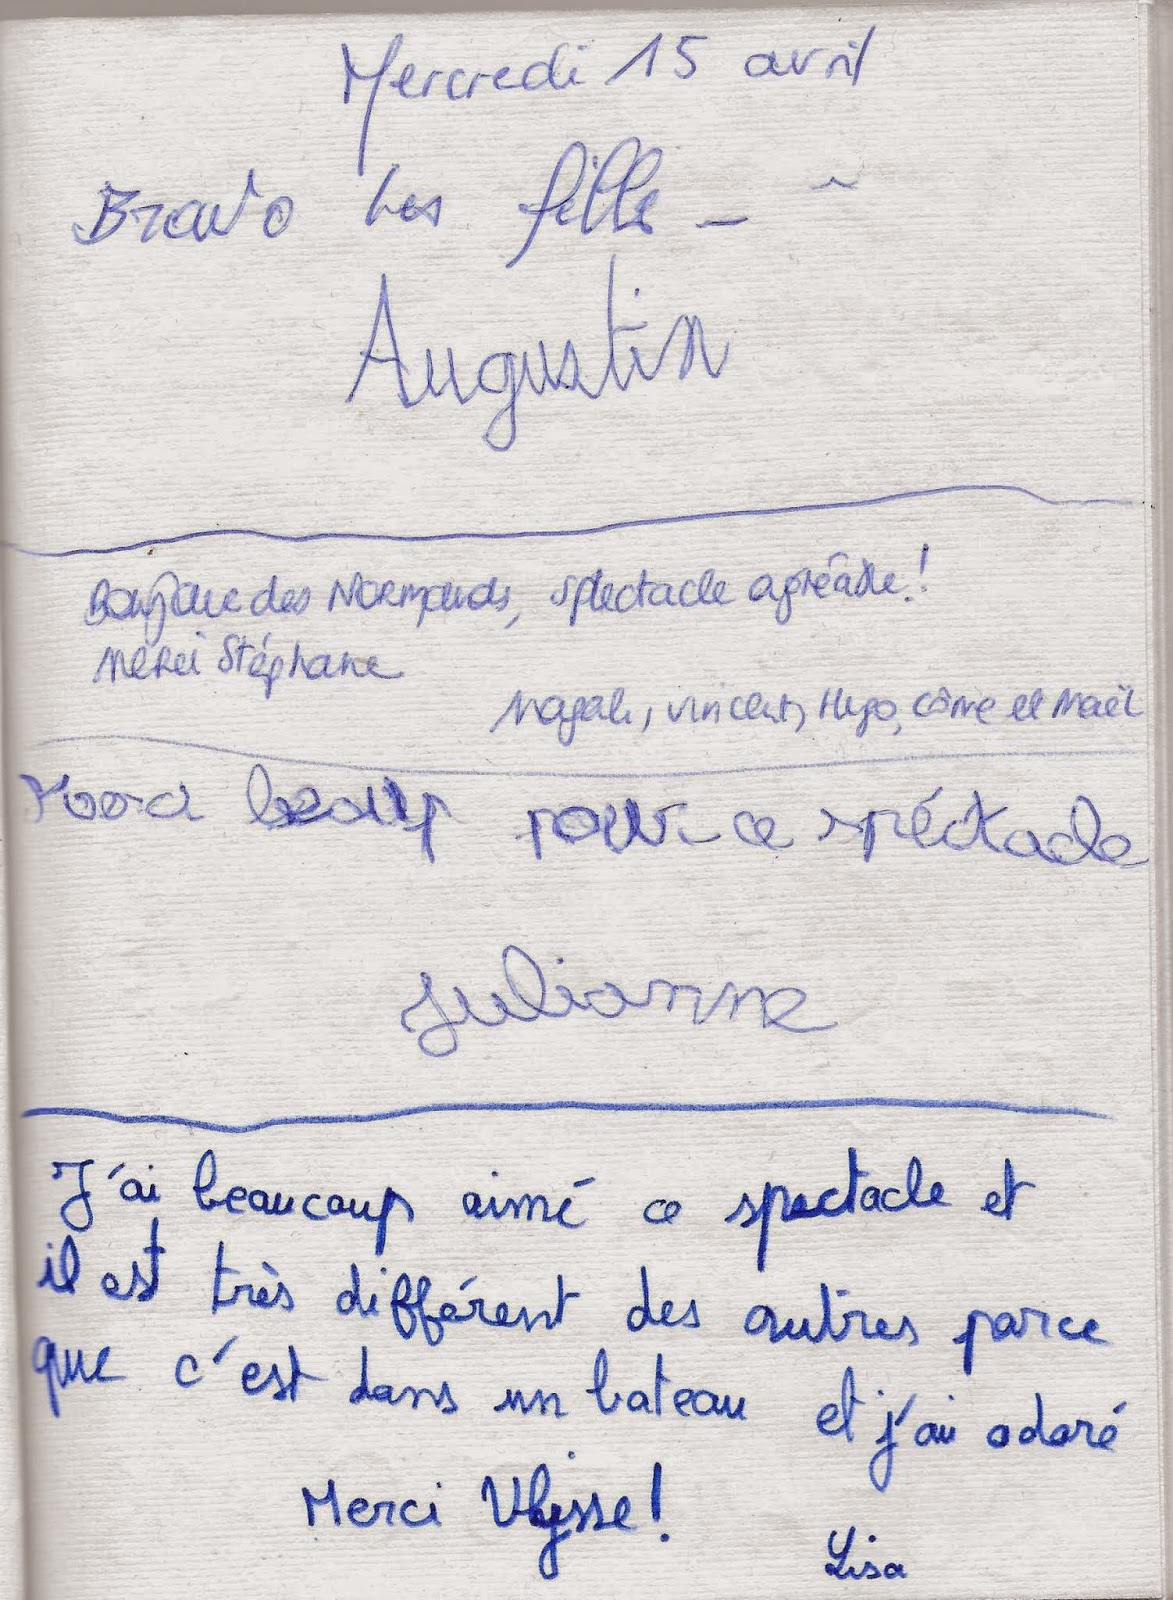 Mercredi 15 avril
Bravo Les fille
Augustin
Bonjour des Normands, spectacle agréable !
Merci Stéphane
Magali, Vincent, Hugo, Côme et Maël
pour ce spéctacle
Julianne
J'ai beaucoup aimé ce spectacle et
il est très différent des autres parce
que c'est dans un bateau et j'ai adoré
Merci Ulysse !
Lisa